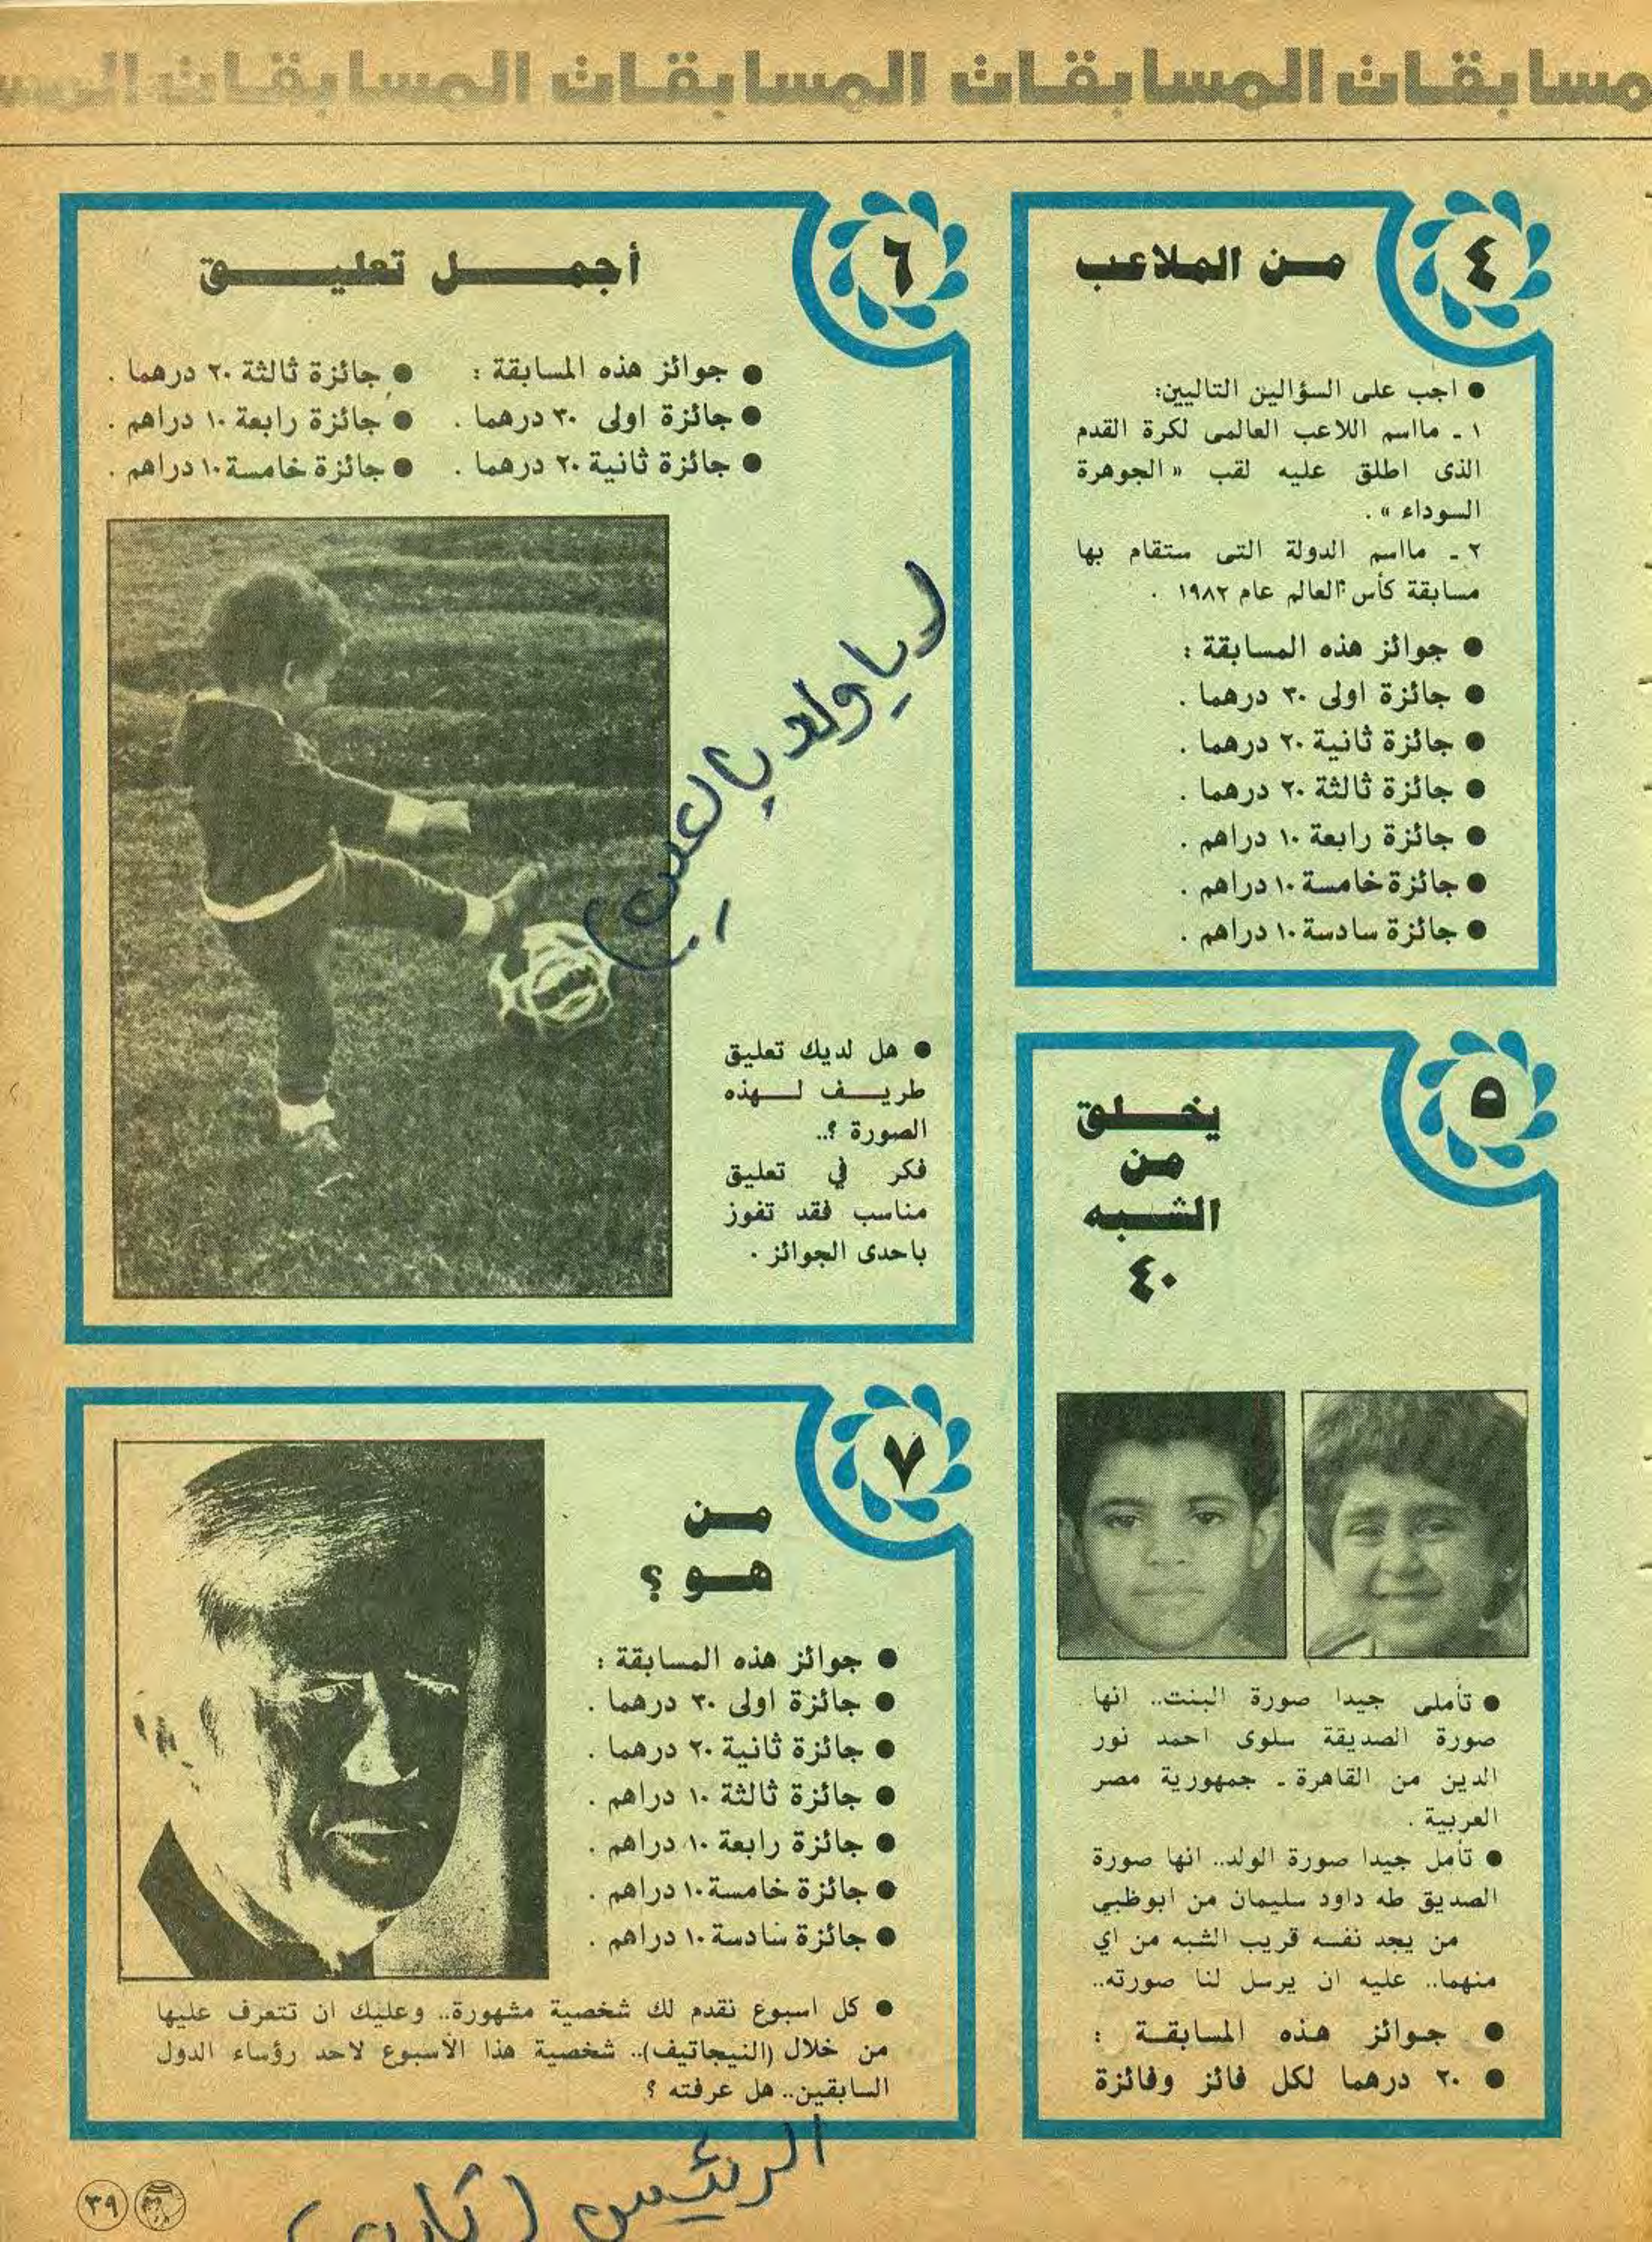 المسابقات المسابقات
٤
من الملاعب
● اجب على السؤالين التاليين:
١ ـ مااسم اللاعب العالمى لكرة القدم
الذى اطلق عليه لقب « الجوهرة
السوداء » .
٢ ـ مااسم الدولة التى ستقام بها
مسابقة كأس العالم عام ١٩٨٢ .
● جوائز هذه المسابقة :
● جائزة اولى ٣٠ درهما .
● جائزة ثانية ٢٠ درهما .
● جائزة ثالثة ٢٠ درهما .
● جائزة رابعة ١٠ دراهم .
● جائزة خامسة ١٠ دراهم .
● جائزة سادسة ١٠ دراهم .
٥
يخلق
من
الشبه
٤٠
● تأملى جيدا صورة البنت.. انها
صورة الصديقة سلوى احمد نور
الدين من القاهرة ـ جمهورية مصر
العربية .
● تأمل جيدا صورة الولد.. انها صورة
الصديق طه داود سليمان من ابوظبي
من يجد نفسه قريب الشبه من اي
منهما.. عليه ان يرسل لنا صورته..
● جوائز هذه المسابقة :
● ٢٠ درهما لكل فائز وفائزة
٦
أجمل تعليق
● جوائز هذه المسابقة :
● جائزة اولى ٣٠ درهما .
● جائزة ثانية ٢٠ درهما .
● جائزة ثالثة ٢٠ درهما .
● جائزة رابعة ١٠ دراهم .
● جائزة خامسة ١٠ دراهم .
ياولد يالعيب
● هل لديك تعليق
طريف لهذه
الصورة ؟..
فكر في تعليق
مناسب فقد تفوز
باحدى الجوائز .
٧
من
هو ؟
● جوائز هذه المسابقة :
● جائزة اولى ٣٠ درهما .
● جائزة ثانية ٢٠ درهما .
● جائزة ثالثة ١٠ دراهم .
● جائزة رابعة ١٠ دراهم .
● جائزة خامسة ١٠ دراهم .
● جائزة سادسة ١٠ دراهم .
● كل اسبوع نقدم لك شخصية مشهورة.. وعليك ان تتعرف عليها
من خلال (النيجاتيف).. شخصية هذا الأسبوع لاحد رؤساء الدول
السابقين.. هل عرفته ؟
الرئيس
٣٩